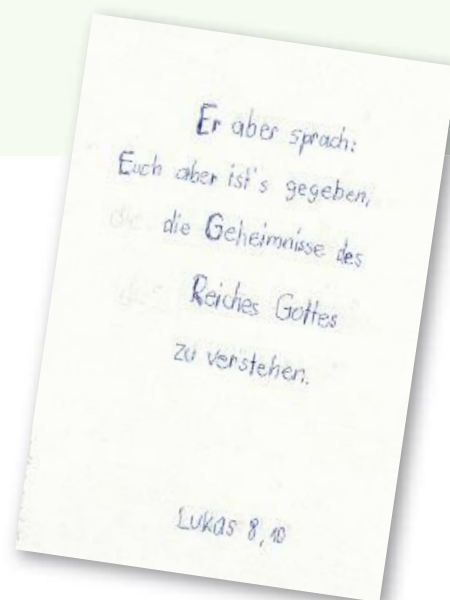 Er aber sprach:
Euch aber ist's gegeben,
die Geheimnisse des
Reiches Gottes
zu verstehen.
Lukas 8,10